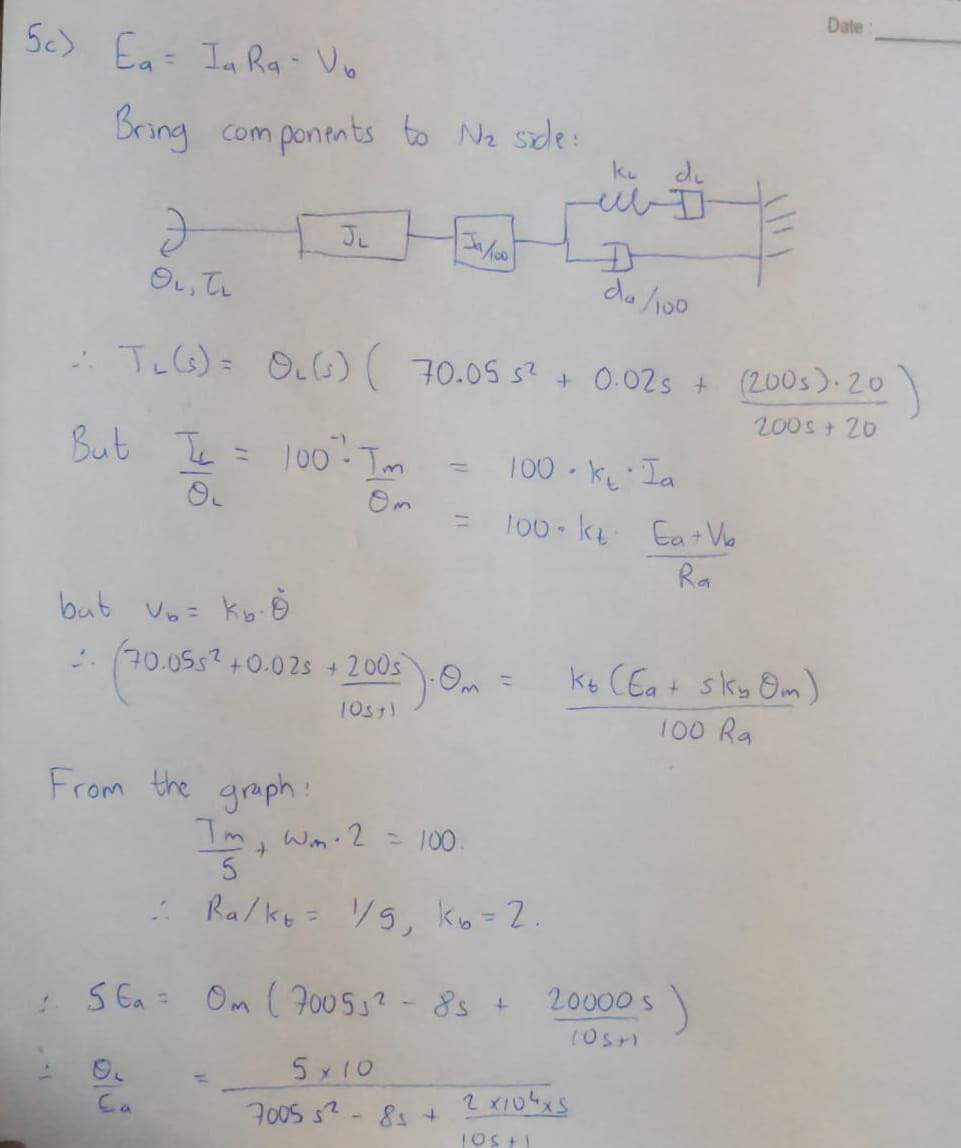 Date:
5c) Ea = Ia Ra - Vb
Bring components to N2 side:
kL dL
JL
Ja/100
θL, TL
da/100
∴ TL(s) = θL(s) ( 70.05 s² + 0.02s + (200s)·20 / 200s + 20 )
But TL/θL = 100⁻¹· Tm/θm = 100 · kt · Ia
= 100 · kt · Ea + Vb / Ra
but Vb = kb·θ̇
∴ ( 70.05s² + 0.02s + 200s / 10s+1 )·θm = kt (Ea + skb θm) / 100 Ra
From the graph:
Tm/5 + ωm·2 = 100.
∴ Ra/kt = 1/5, kb = 2.
∴ 5Ea = θm ( 7005s² - 8s + 20000s / 10s+1 )
∴ θL/Ea = 5 x 10 / 7005 s² - 8s + 2 x10⁴xs / 10s+1